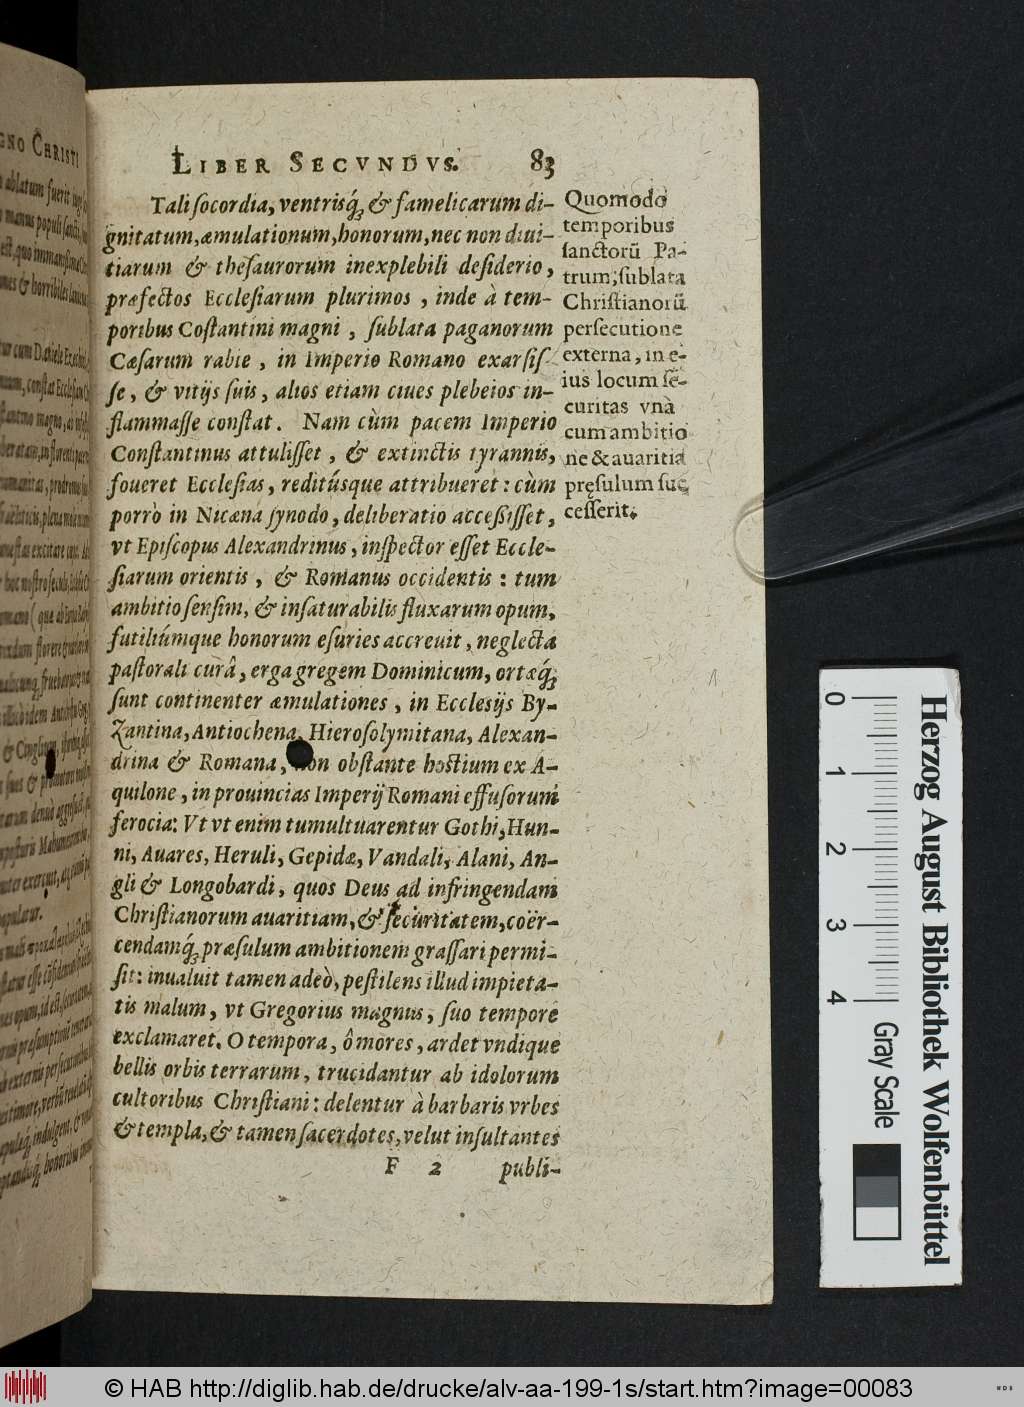 LIBER SECVNDVS. 83
Tali socordia, ventrisq́ꝫ & famelicarum di-
gnitatum, æmulationum, honorum, nec non diui-
tiarum & thesaurorum inexplebili desiderio,
præfectos Ecclesiarum plurimos, inde à tem-
poribus Costantini magni, sublata paganorum
Cæsarum rabie, in Imperio Romano exarsis-
se, & vitijs suis, alios etiam ciues plebeios in-
flammasse constat. Nam cùm pacem Imperio
Constantinus attulisset, & extinctis tyrannis,
foueret Ecclesias, reditúsque attribueret: cùm
porrò in Nicæna synodo, deliberatio accessisset,
vt Episcopus Alexandrinus, inspector esset Eccle-
siarum orientis, & Romanus occidentis: tum
ambitio sensim, & insaturabilis fluxarum opum,
futiliúmque honorum esuries accreuit, neglecta
pastorali curâ, erga gregem Dominicum, ortæq́ꝫ
sunt continenter æmulationes, in Ecclesijs By-
zantina, Antiochena, Hierosolymitana, Alexan-
drina & Romana, non obstante hostium ex A-
quilone, in prouincias Imperij Romani effusorum
ferocia: Vt vt enim tumultuarentur Gothi, Hun-
ni, Auares, Heruli, Gepidæ, Vandali, Alani, An-
gli & Longobardi, quos Deus ad infringendam
Christianorum auaritiam, & securitatem, coër-
cendamq́ꝫ præsulum ambitionem grassari permi-
sit: inualuit tamen adeò, pestilens illud impieta-
tis malum, vt Gregorius magnus, suo tempore
exclamaret. O tempora, ô mores, ardet vndique
bellis orbis terrarum, trucidantur ab idolorum
cultoribus Christiani: delentur à barbaris vrbes
& templa, & tamen sacerdotes, velut insultantes
F 2 publi-
Quomodo
temporibus
sanctorū Pa-
trum, sublata
Christianorū
persecutione
externa, in e-
ius locum se-
curitas vnà
cum ambitio
ne & auaritia
pręsulum suc
cesserit.
GNO CHRISTI
0 1 2 3 4
Herzog August Bibliothek Wolfenbüttel
Gray Scale
© HAB http://diglib.hab.de/drucke/alv-aa-199-1s/start.htm?image=00083